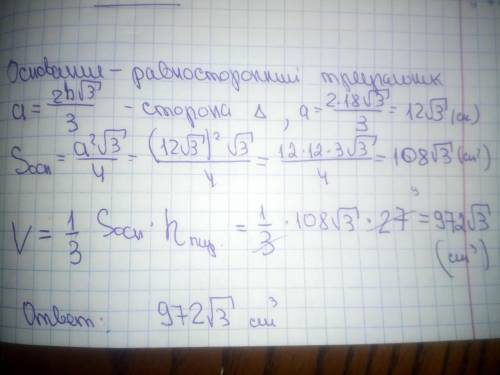 Основание – равносторонний треугольник
a = 2h√3/3 – сторона Δ, a = 2·18√3/3 = 12√3 (см)
Sосн = a²√3/4 = (12√3)²√3/4 = 12·12·3√3/4 = 108√3 (см²)
V = 1/3 Sосн · hпир. = 1/3 · 108√3 · 27 9 = 972√3 (см³)
Ответ: 972√3 см³